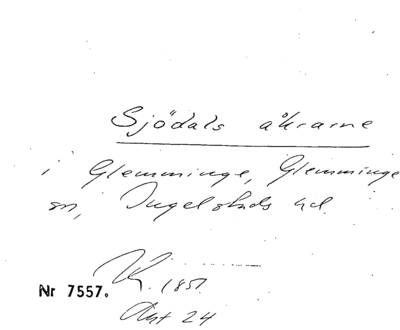 Sjödals åkrarne
i Glemminge, Glemminge
sn, Ingelstads hd
K. 1851
Nr 7557.
Akt 24